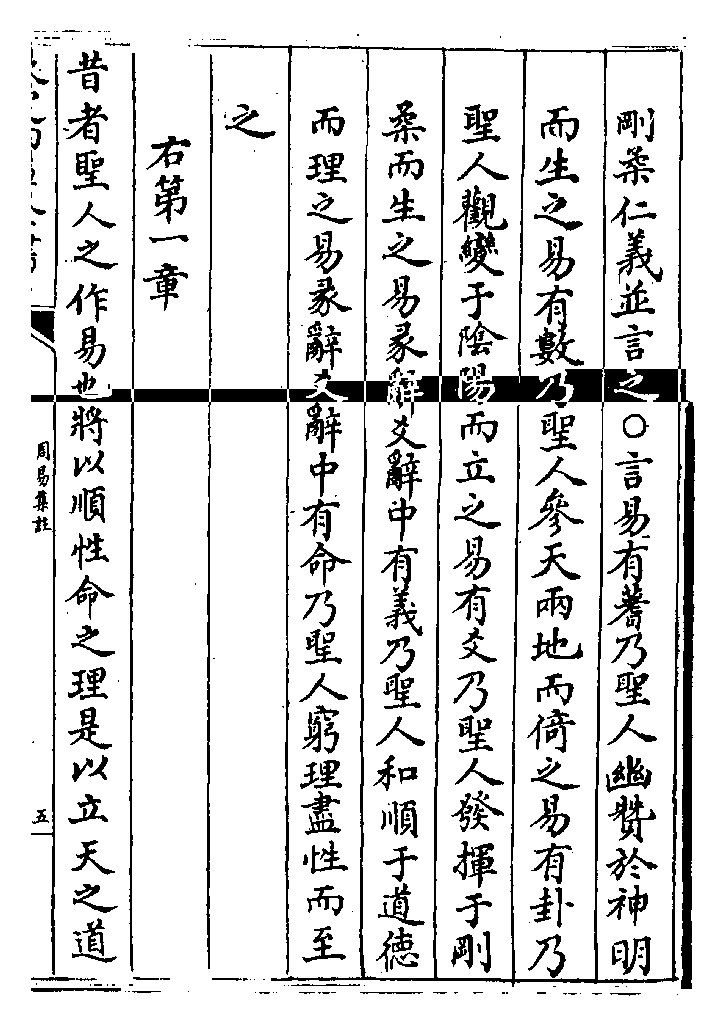 剛柔仁義並言之○言易有蓍乃聖人幽贊於神明
而生之易有數乃聖人參天兩地而倚之易有卦乃
聖人觀變于陰陽而立之易有爻乃聖人發揮于剛
柔而生之易彖辭爻辭中有義乃聖人和順于道德
而理之易彖辭爻辭中有命乃聖人窮理盡性而至
之
右第一章
昔者聖人之作易也將以順性命之理是以立天之道
周易集註
五